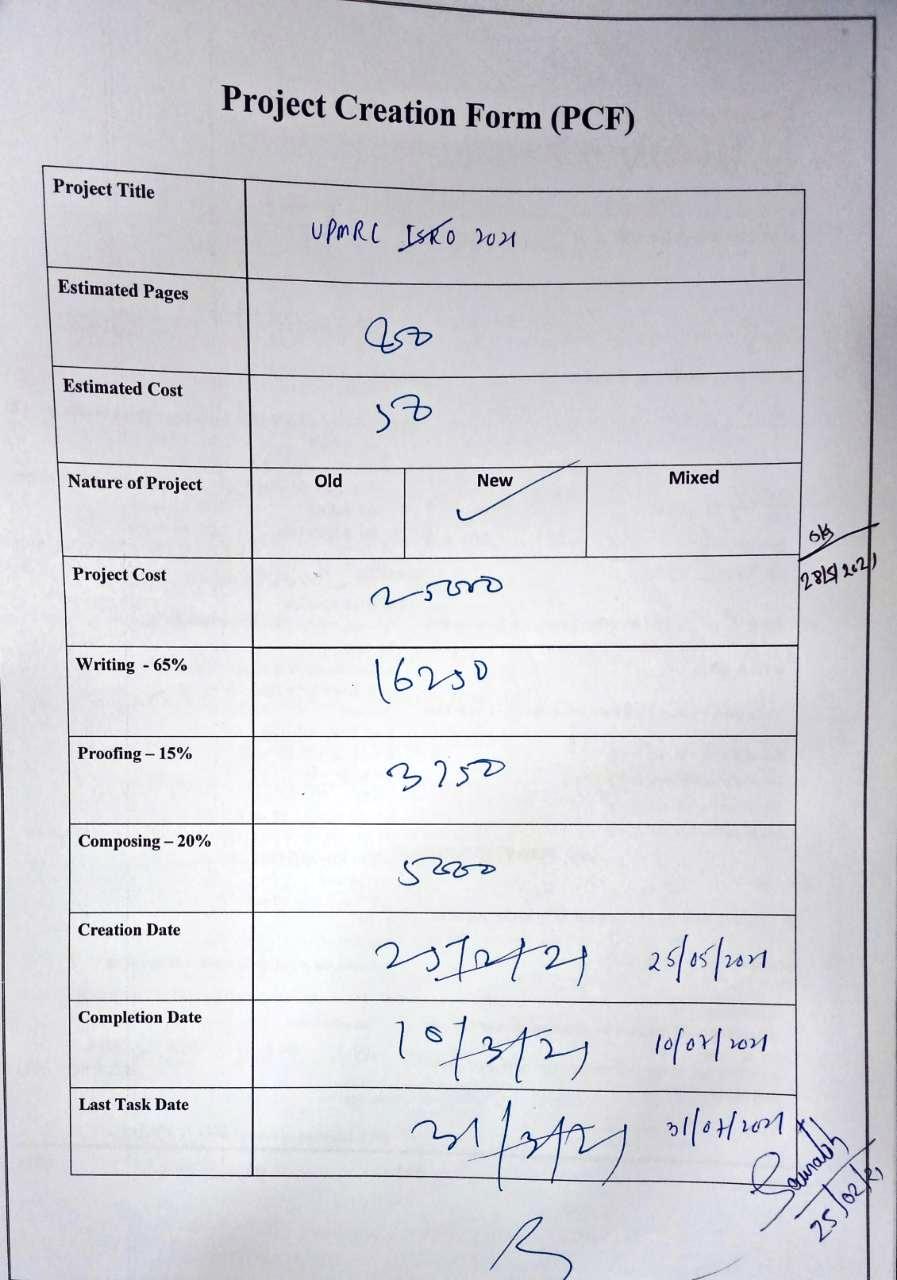 Project Creation Form (PCF)
Project Title
UPMRC ISRO 2021
Estimated Pages
450
Estimated Cost
50
Nature of Project Old New Mixed
ok
28/5/2021
Project Cost
25000
Writing - 65%
16250
Proofing – 15%
3750
Composing – 20%
5000
Creation Date
25/2/21 25/05/2021
Completion Date
10/3/21 10/07/2021
Last Task Date
31/3/21 31/07/2021
Saurabh
25/02/21